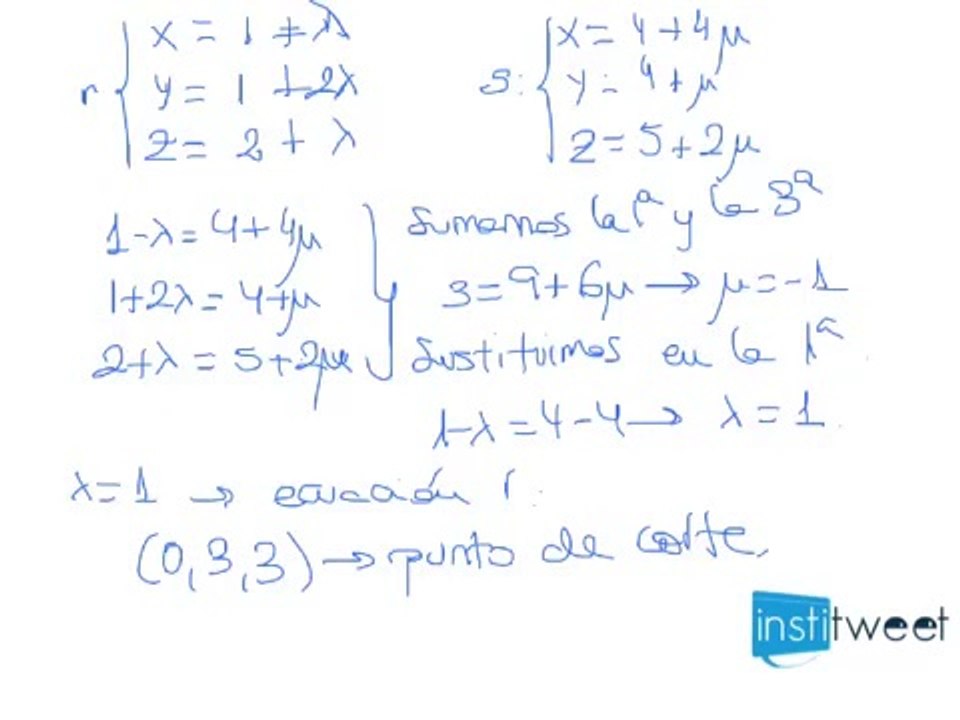 r { x = 1 - λ
y = 1 + 2λ
z = 2 + λ
s: { x = 4 + 4μ
y = 4 + μ
z = 5 + 2μ
1 - λ = 4 + 4μ
1 + 2λ = 4 + μ
2 + λ = 5 + 2μ
Sumamos la 1ª y la 3ª
3 = 9 + 6μ → μ = -1
Sustituimos en la 1ª
1 - λ = 4 - 4 → λ = 1
λ = 1 → ecuación r:
(0, 3, 3) → punto de corte.
institweet